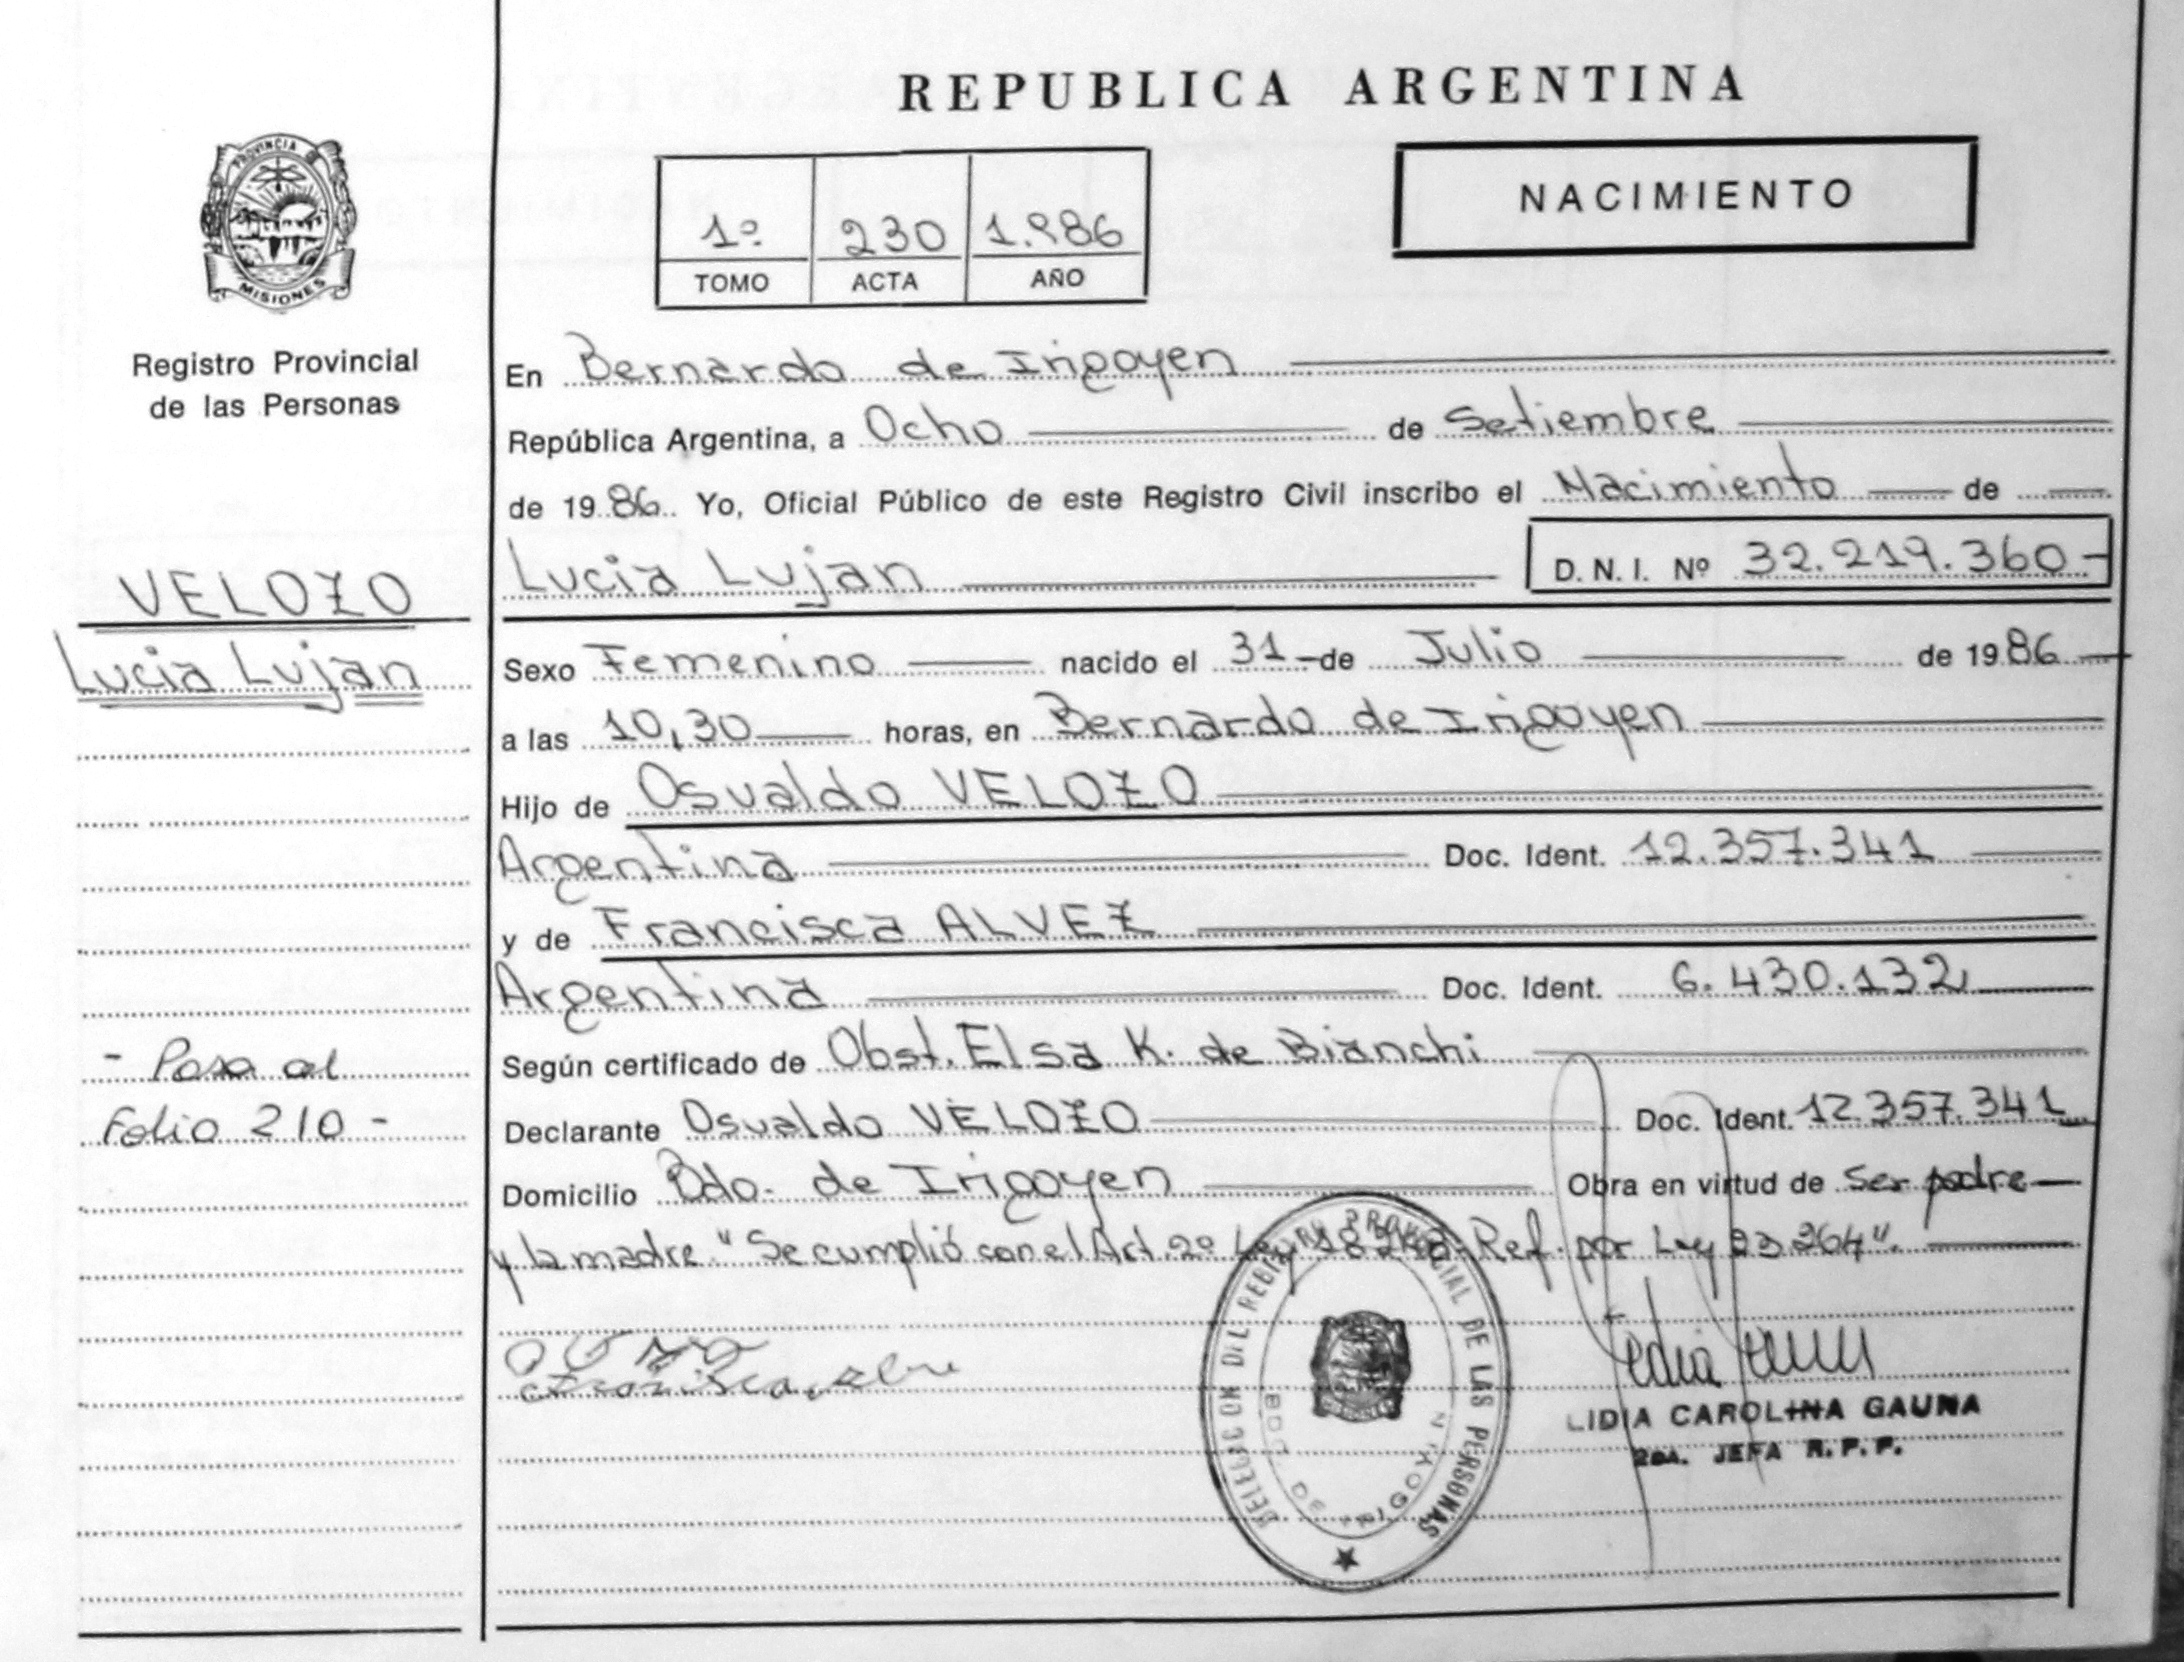 REPUBLICA ARGENTINA
PROVINCIA
MISIONES
Registro Provincial
de las Personas
1º 230 1.986
TOMO ACTA AÑO
NACIMIENTO
En Bernardo de Irigoyen
República Argentina, a Ocho de Setiembre
de 19 86 Yo, Oficial Público de este Registro Civil inscribo el Nacimiento de
VELOZO
Lucia Lujan
Lucia Lujan D. N. I. Nº 32.219.360-
Sexo Femenino nacido el 31 de Julio de 19 86
a las 10,30 horas, en Bernardo de Irigoyen
Hijo de Osvaldo VELOZO
Argentina Doc. Ident. 12.357.341
y de Francisca ALVEZ
Argentina Doc. Ident. 6.430.132
Según certificado de Obst. Elsa K. de Bianchi
- Pasa al
Folio 210 -
Declarante Osvaldo VELOZO Doc. Ident. 12.357.341
Domicilio Bdo. de Irigoyen Obra en virtud de Ser padre
y la madre "Se cumplió con el Art. 2º Ley Ref. por Ley 23264".
DELEGACION DEL REGISTRO PROVINCIAL DE LAS PERSONAS
BDO DE IRIGOYEN
LIDIA CAROLINA GAUNA
2da. JEFA R. P. P.